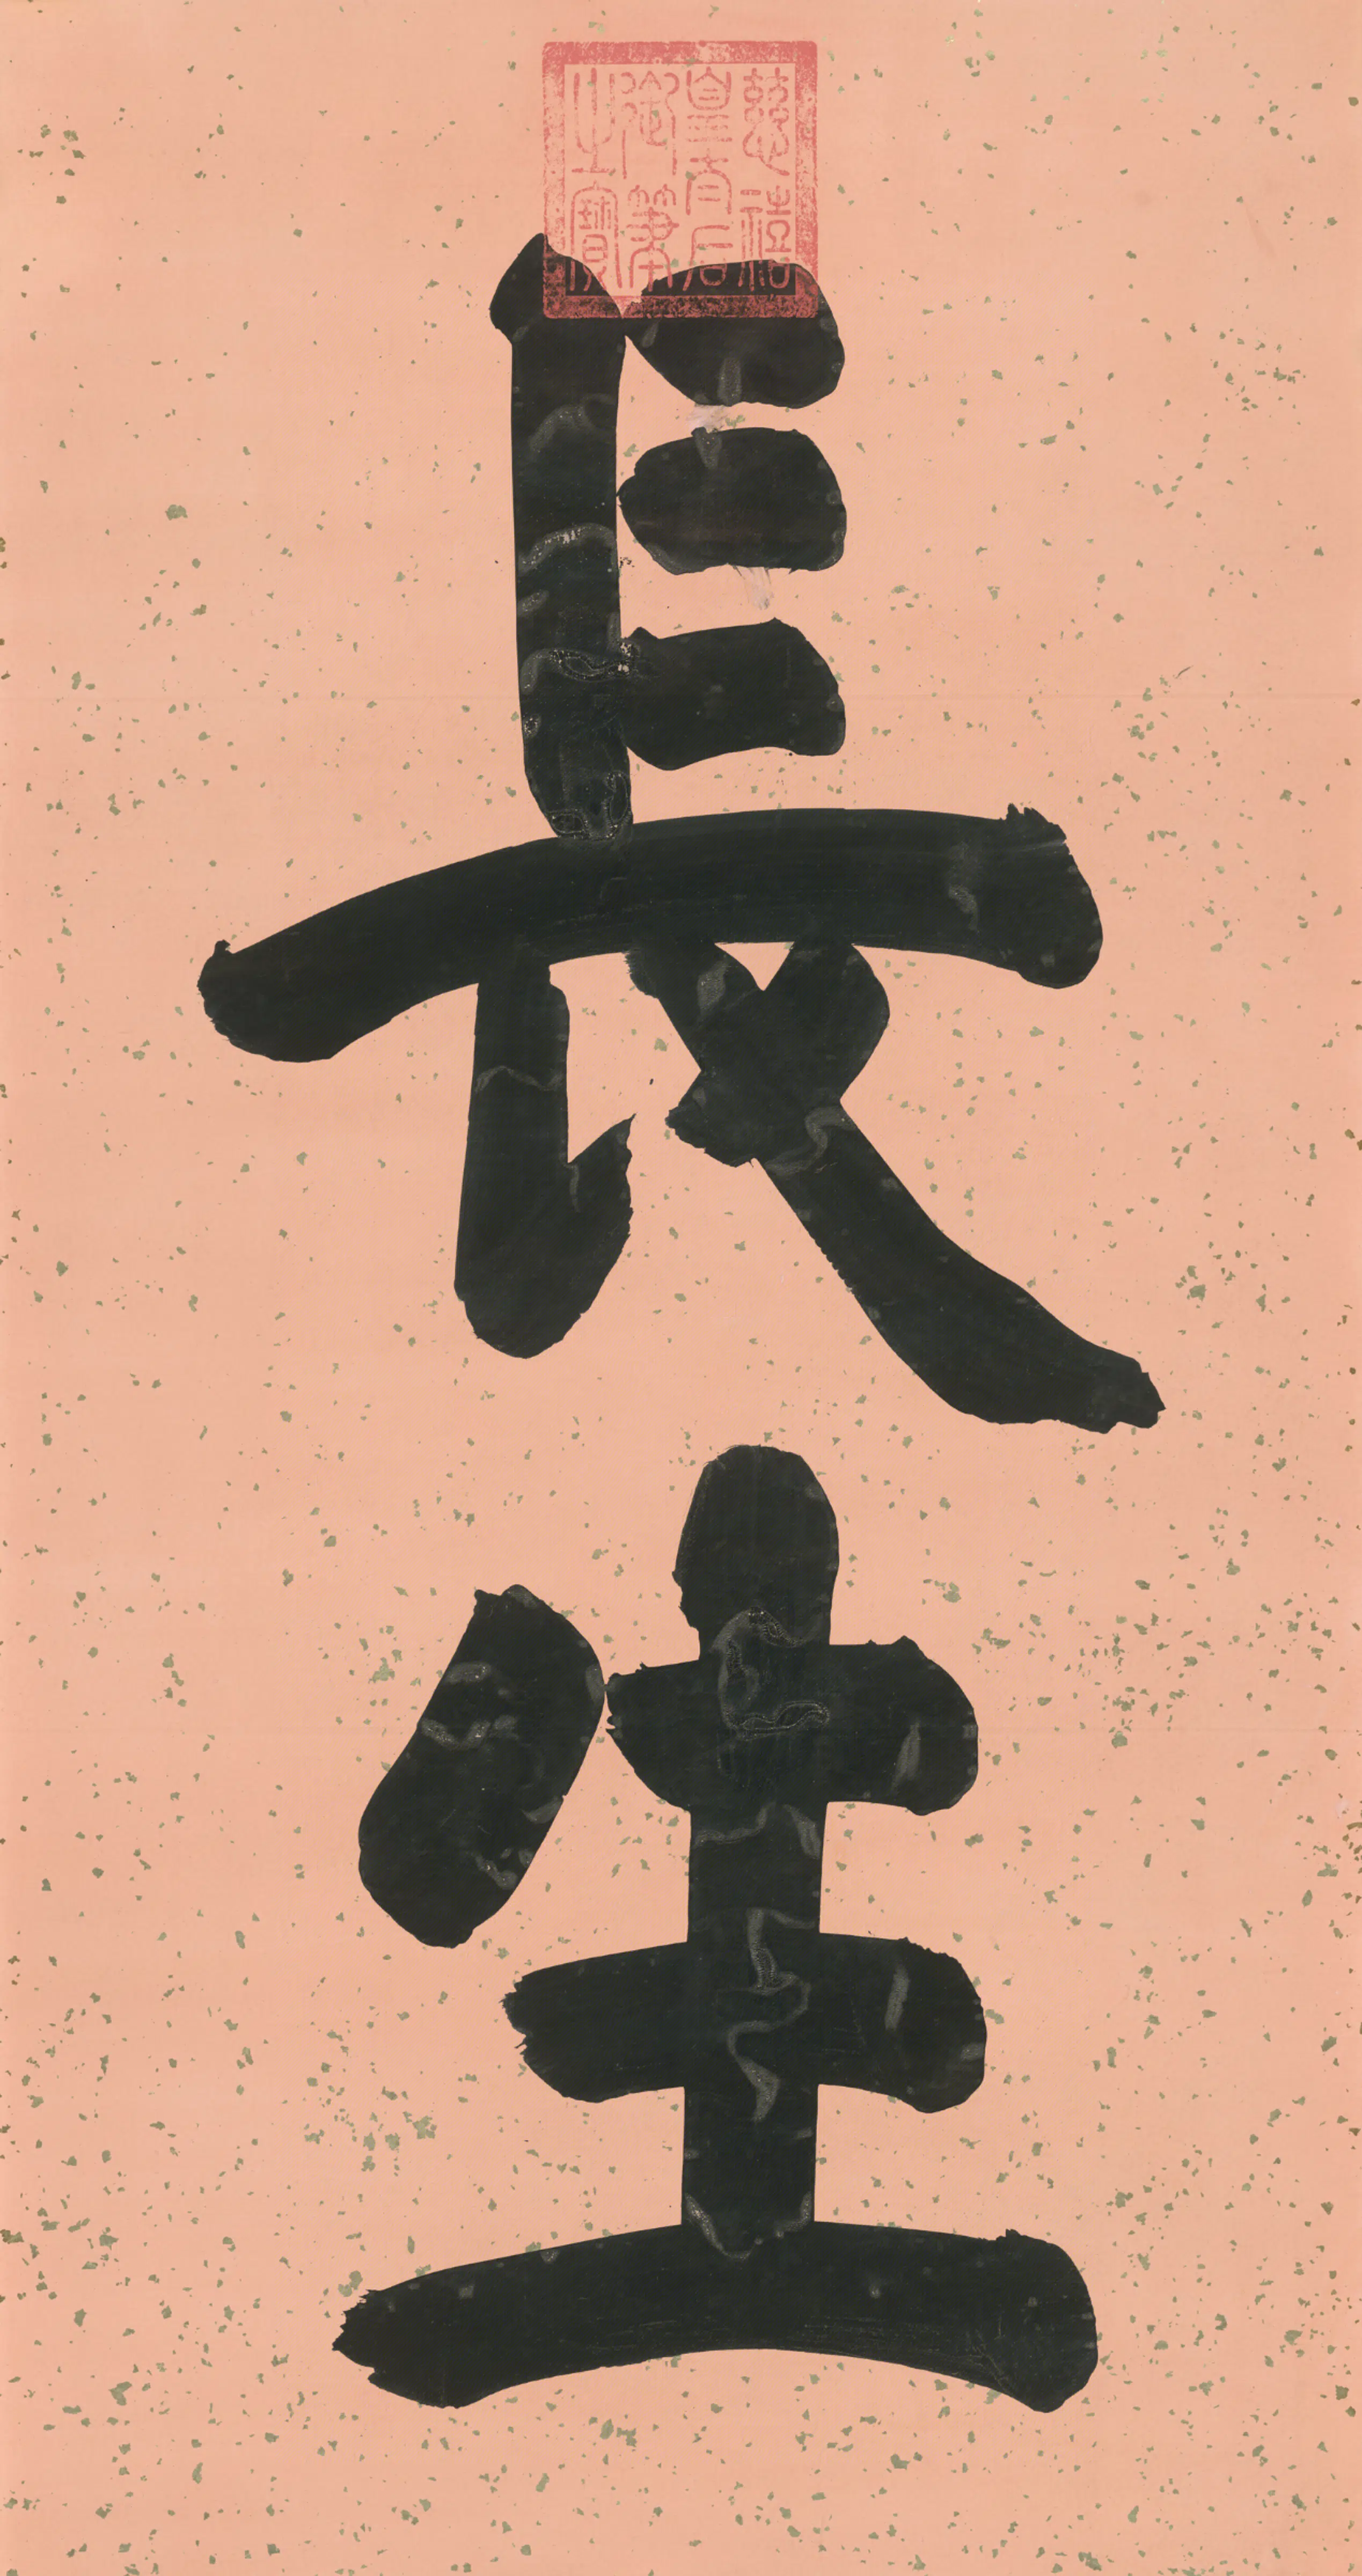 慈禧
皇太后
御筆
之寶
長生